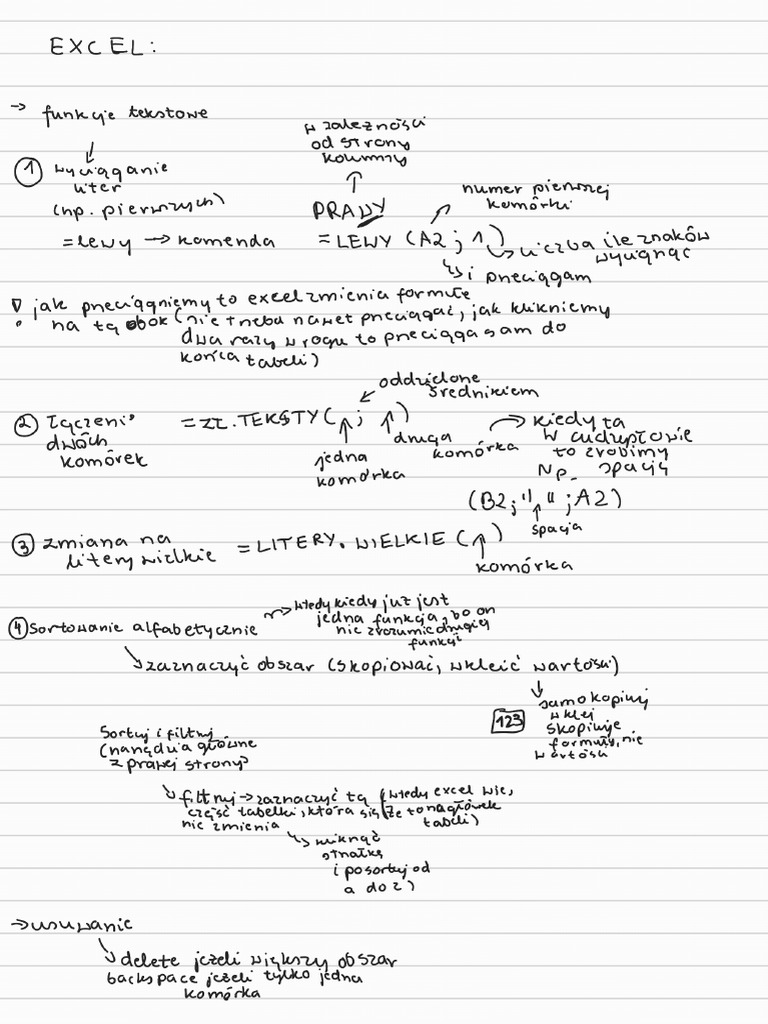 EXCEL:
→ funkcje tekstowe
w zależności
od strony
kolumny
① wyciąganie
liter
(np. pierwszych)
PRAWY
numer pierwszej
komórki
=lewy → komenda
=LEWY (A2 ; 1)
liczba ile znaków
wyciągnąć
i przeciągam
! jak przeciągniemy to excel zmienia formułę
na tą obok (nie trzeba nawet przeciągać, jak klikniemy
dwa razy w rogu to przeciąga sam do
końca tabeli)
oddzielone
średnikiem
② łączenie
dwóch
komórek
=ZŁ.TEKSTY( ; )
jedna
komórka
druga
komórka
kiedy ta
w cudzysłowie
to zrobimy
np. spację
(B2;" ";A2)
spacja
③ zmiana na
litery wielkie
=LITERY.WIELKIE ( )
komórka
④ sortowanie alfabetycznie
wtedy kiedy już jest
jedna funkcja, bo on
nie zrozumie drugiej
funkcji
zaznaczyć obszar (skopiować, wkleić wartości)
samo kopiuj
wklej
skopiuje
formuły, nie
wartości
123
Sortuj i filtruj
(narzędzia główne
z prawej strony)
filtruj → zaznaczyć tą
część tabelki, która się
nie zmienia
(wtedy excel wie,
że to nagłówek
tabeli)
kliknąć
strzałkę
i posortuj od
a do z)
→ usuwanie
delete jeżeli większy obszar
backspace jeżeli tylko jedna
komórka